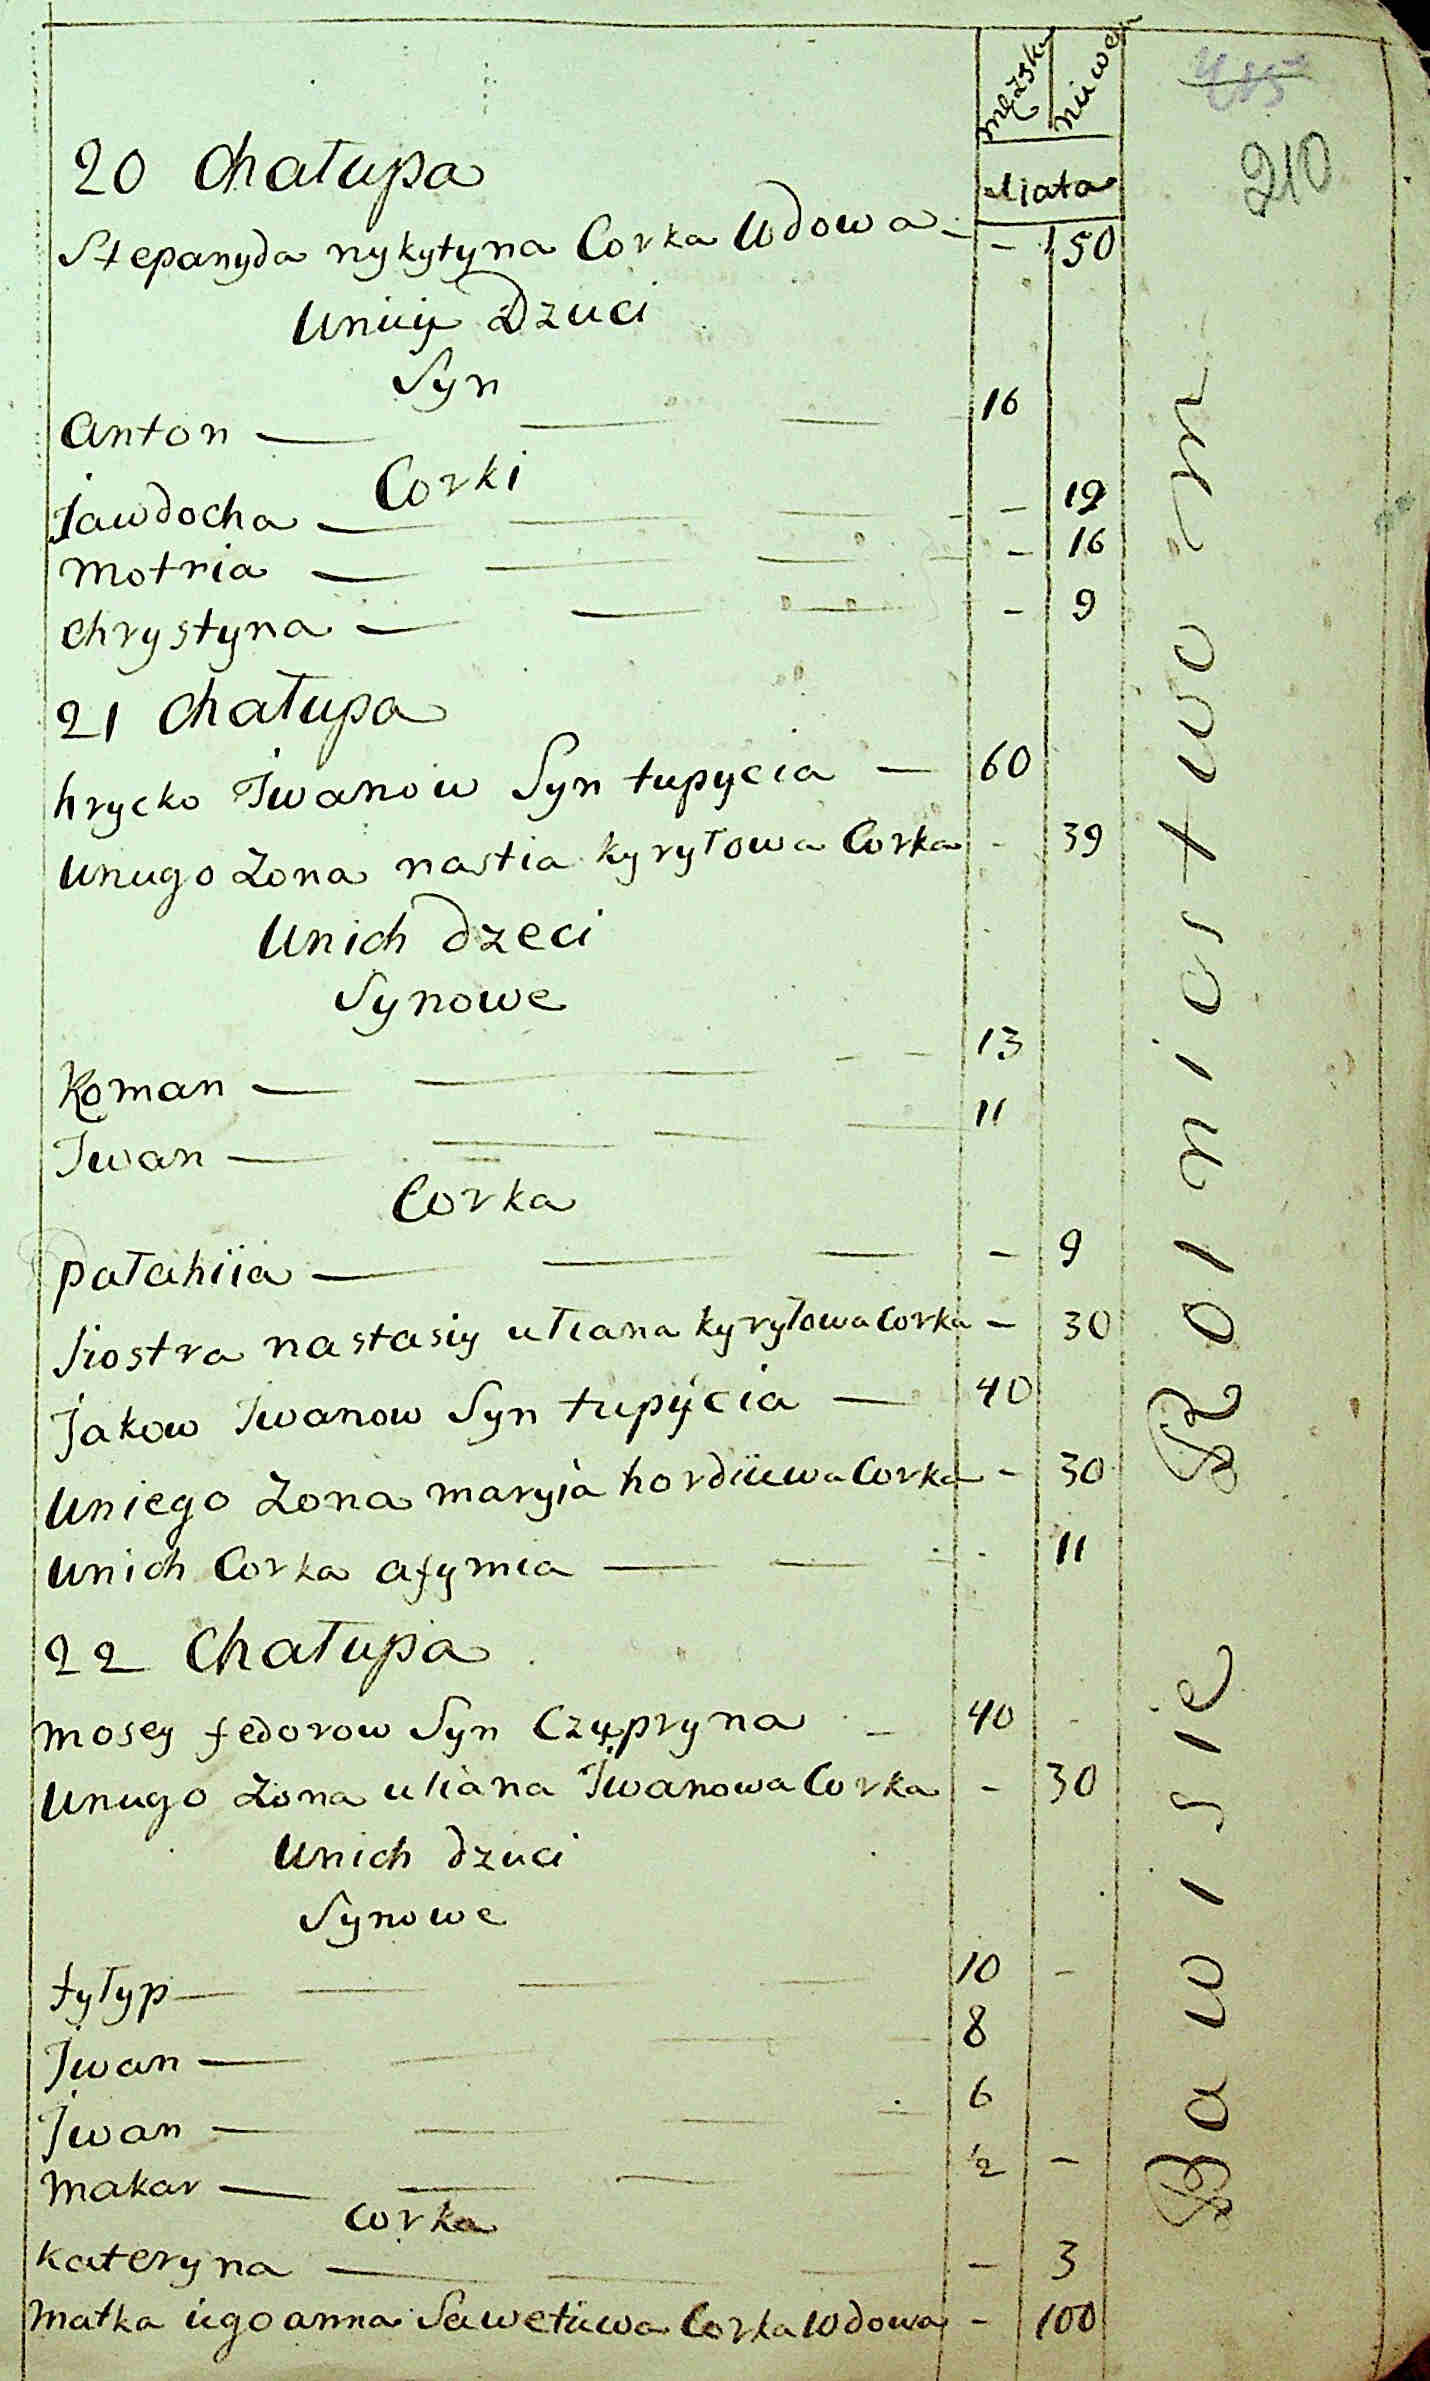 męzska
niewe
Liata
210
20 Chałupa
Stepanyda nykytyna Corka Wdowa - - 50
Uniiy Dzieci
Syn
Anton - 16
Corki
Jawdocha - 19
motria - 16
Chrystyna - 9
21 Chałupa
hrycko Iwanow Syn łupycia - 60
Uniego Zona nastia kyryłowa Corka - 39
Unich dzeci
Synowe
Roman - 13
Iwan - 11
Corka
pałahiia - 9
Siostra nastasiy uliana kyryłowa Corka - 30
Jakow Iwanow Syn łupycia - 40
Uniego Zona maryia hordiiewa Corka - 30
Unich Corka afymia - 11
22 Chałupa
mosey fedorow Syn Czupryna - 40
Uniego Zona uliana Iwanowa Corka - 30
Unich dzieci
Synowe
fyłyp - 10 -
Iwan - 8
Iwan - 6
makar - ½ -
Corka
kateryna - 3
matka iego anna Sawetiewa Corka Wdowa - 100
Bawi sie Rolniostwo m